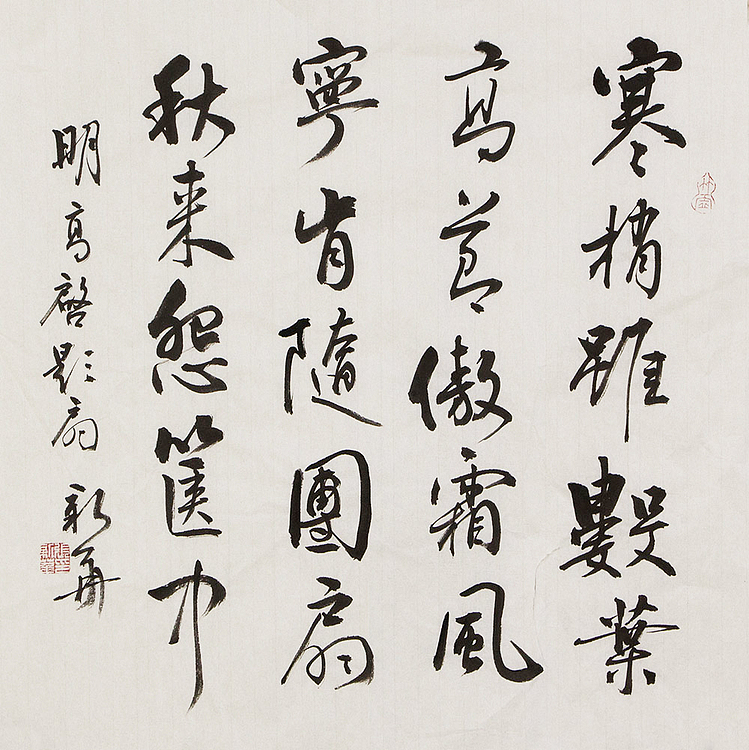 寒梢雖數葉
高節傲霜風
寧肯隨團扇
秋來怨篋中
明高啓題扇 新